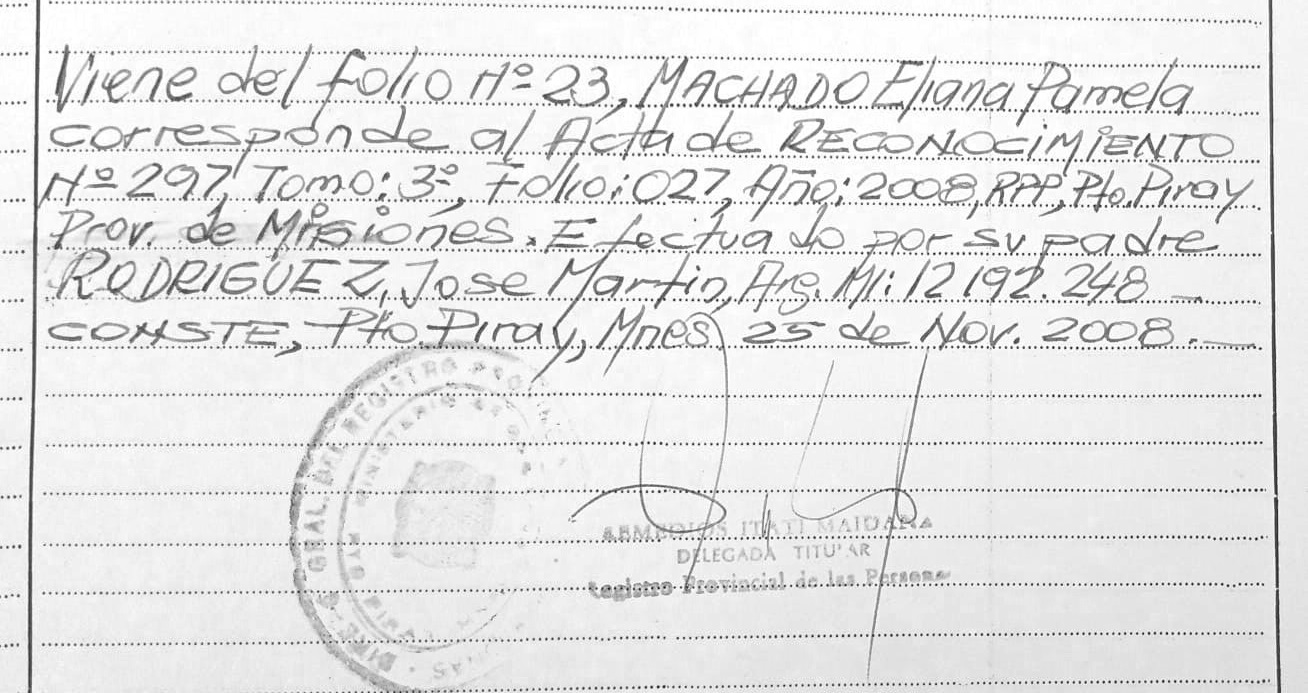 Viene del folio Nº 23, MACHADO Eliana Pamela
corresponde al Acta de RECONOCIMIENTO
Nº 297, Tomo: 3º, Folio: 027, Año: 2008, RPP, Pto. Piray
Prov. de Misiones. Efectuado por su padre
RODRIGUEZ, Jose Martin, Arg. MI: 12.192.248 _
CONSTE, Pto. Piray, Mnes, 25 de Nov. 2008. _
GRAL. DEL REGISTRO
MINISTERIO
ITATI MAIDANA
DELEGADA TITULAR
Registro Provincial de las Personas